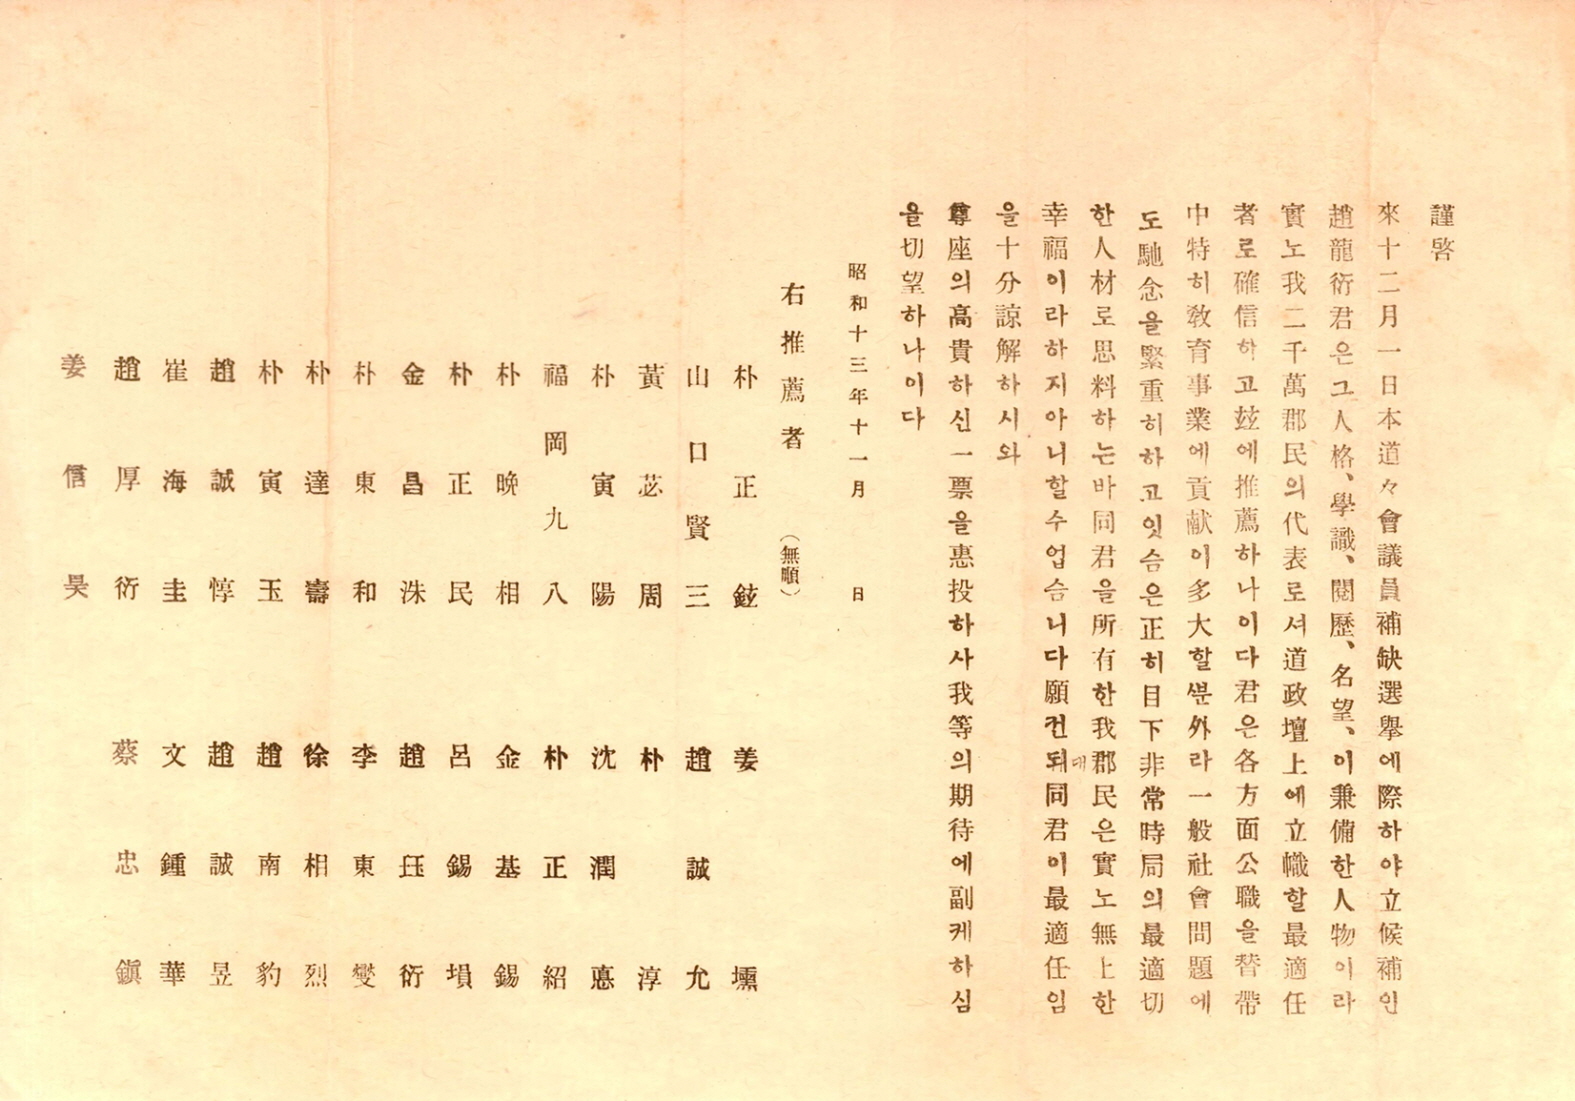 謹啓
來十二月一日本道々會議員補缺選擧에際하야立候補인
趙龍衍君은그人格、學識、閱歷、名望、이兼備한人物이라
實노我二千萬郡民의代表로셔道政壇上에立幟할最適任
者로確信하고玆에推薦하나이다君은各方面公職을替帶
中特히敎育事業에貢献이多大할뿐外라一般社會問題에
도馳念을緊重히하고잇슴은正히目下非常時局의最適切
한人材로思料하는바同君을所有한我郡民은實노無上한
대
幸福이라하지아니할수업슴니다願컨되同君이最適任임
을十分諒解하시와
尊座의高貴하신一票을惠投하사我等의期待에副케하심
을切望하나이다
昭和十三年十一月　日
右推薦者　（無順）
朴正鉉　姜　壎
山口賢三　趙誠允
黃苾周　朴　淳
朴寅陽　沈潤悳
福岡九八　朴正紹
朴晩相　金基錫
朴正民　呂錫塤
金昌洙　趙珏衍
朴東和　李東燮
朴達壽　徐相烈
朴寅玉　趙南豹
趙誠惇　趙誠昱
崔海圭　文鍾華
趙厚衍　蔡忠鎭
姜信昊